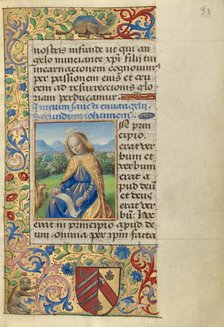 nostris infunde ut qui an
gelo nunciante xpi filii tui
incarnationem cognovim
per passionem eius et cru
cem ad resurrectionis glo
riam perducamur
Initium sancti euuangelii
secundum iohannem
In
principio
erat ver
bum et
verbum
erat a
pud deū
et deus
erat ver
bū. Hoc
erat in principio apud de
um. Omnia per ipm facta